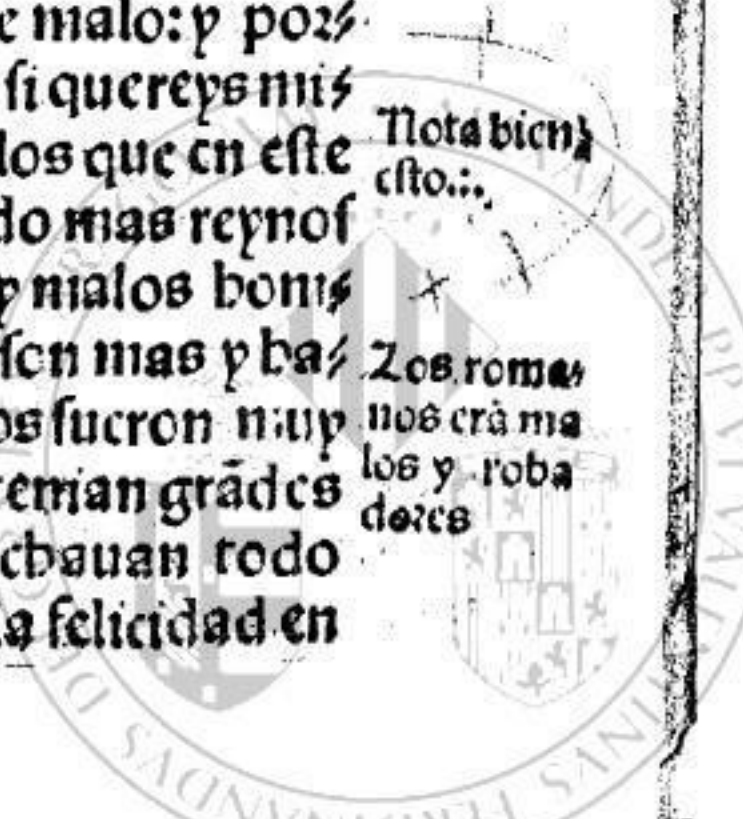 e malo: y por⸗
si quereys mis⸗
los que en este
do mas reynos
y malos homi⸗
son mas y ha⸗
os fueron muy
temian grādes
echauan todo
la felicidad en
Nota bien
esto.:.
Los roma⸗
nos erā ma
los y roba
dores